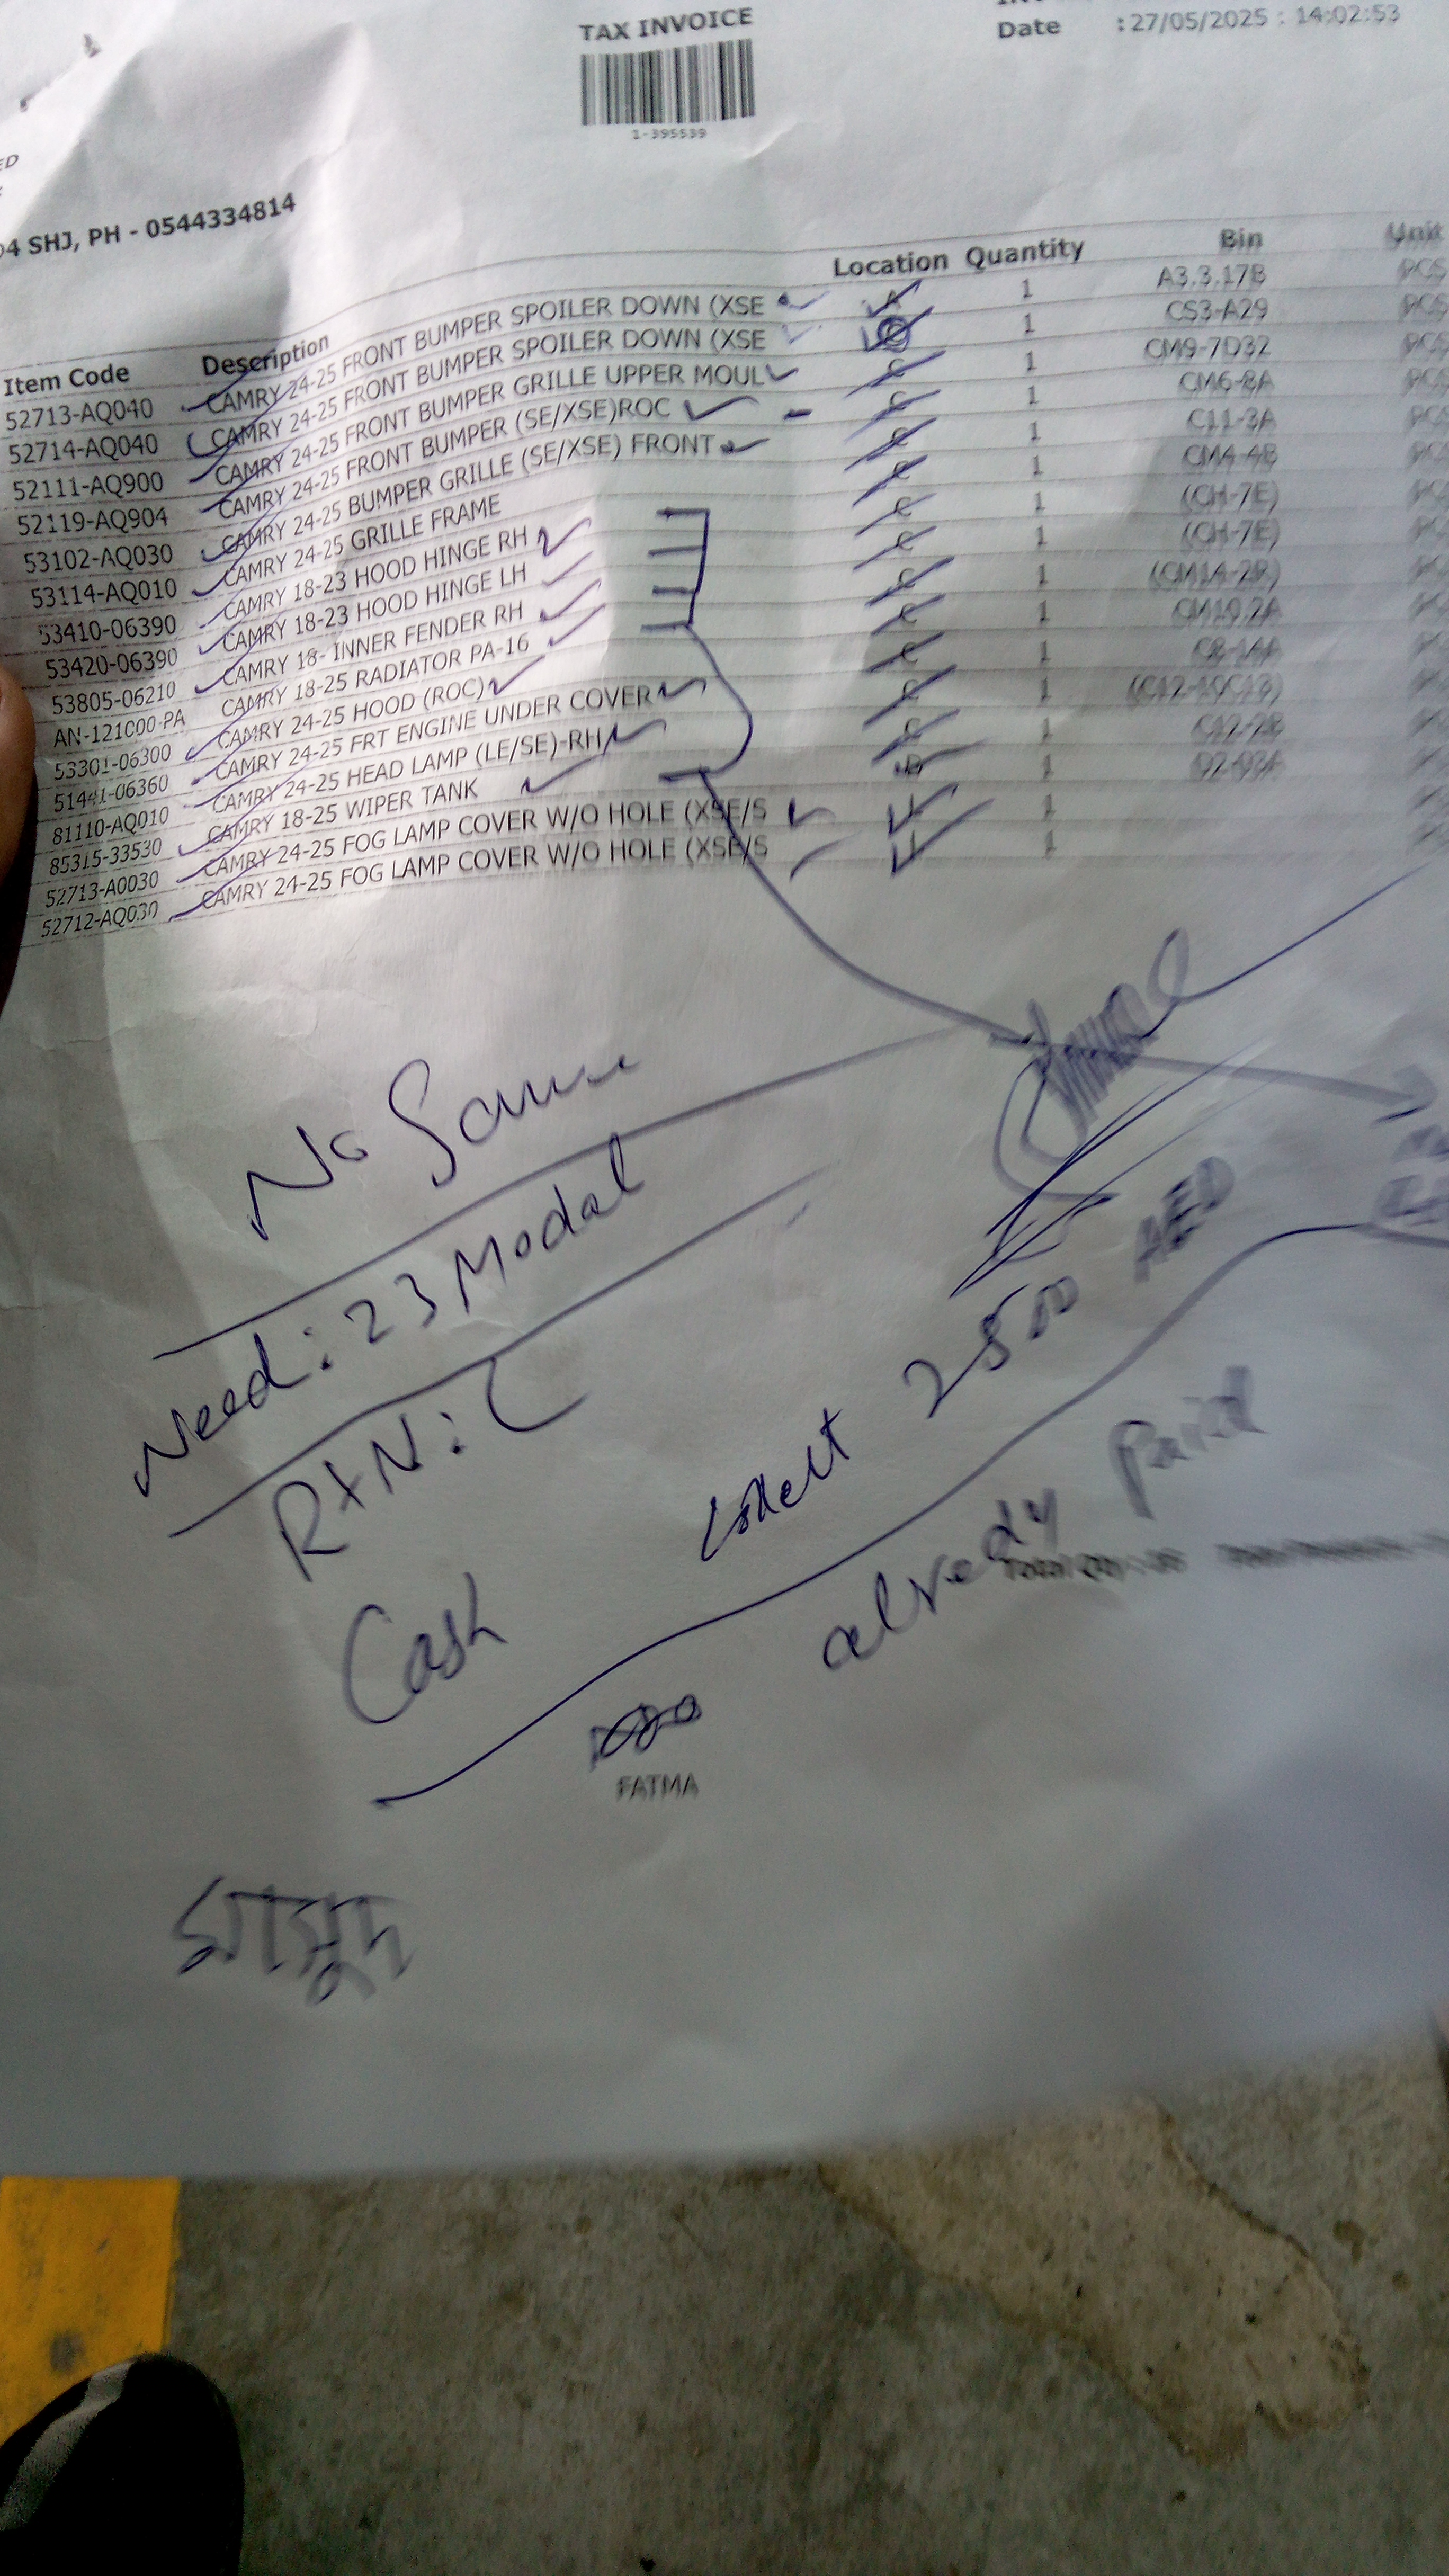 TAX INVOICE
Date : 27/05/2025 : 14:02:53
1-395539
SHJ, PH - 0544334814
Item Code Description Location Quantity Bin Unit
52713-AQ040 CAMRY 24-25 FRONT BUMPER SPOILER DOWN (XSE A 1 A3.3.17B PCS
52714-AQ040 CAMRY 24-25 FRONT BUMPER SPOILER DOWN (XSE C 1 CS3-A29 PCS
52111-AQ900 CAMRY 24-25 FRONT BUMPER GRILLE UPPER MOUL C 1 CM9-7D32 PCS
52119-AQ904 CAMRY 24-25 FRONT BUMPER (SE/XSE)ROC C 1 CM6-8A PCS
53102-AQ030 CAMRY 24-25 BUMPER GRILLE (SE/XSE) FRONT C 1 C11-3A
53114-AQ010 CAMRY 24-25 GRILLE FRAME C 1 CM4-4B
53410-06390 CAMRY 18-23 HOOD HINGE RH C 1 (CH-7E)
53420-06390 CAMRY 18-23 HOOD HINGE LH C 1 (CH-7E)
53805-06210 CAMRY 18- INNER FENDER RH C 1
AN-121000-PA CAMRY 18-25 RADIATOR PA-16 C 1
53301-06300 CAMRY 24-25 HOOD (ROC) C 1
51441-06360 CAMRY 24-25 FRT ENGINE UNDER COVER C 1
81110-AQ010 CAMRY 24-25 HEAD LAMP (LE/SE)-RH C 1
85315-33530 CAMRY 18-25 WIPER TANK 1
52713-A0030 CAMRY 24-25 FOG LAMP COVER W/O HOLE (XSE/S 1
52712-AQ030 CAMRY 24-25 FOG LAMP COVER W/O HOLE (XSE/S 1
No Same
Need: 23 Modal
RTN: C
2500 AED
Cash
alredy Paid
FATMA
মাসুদ